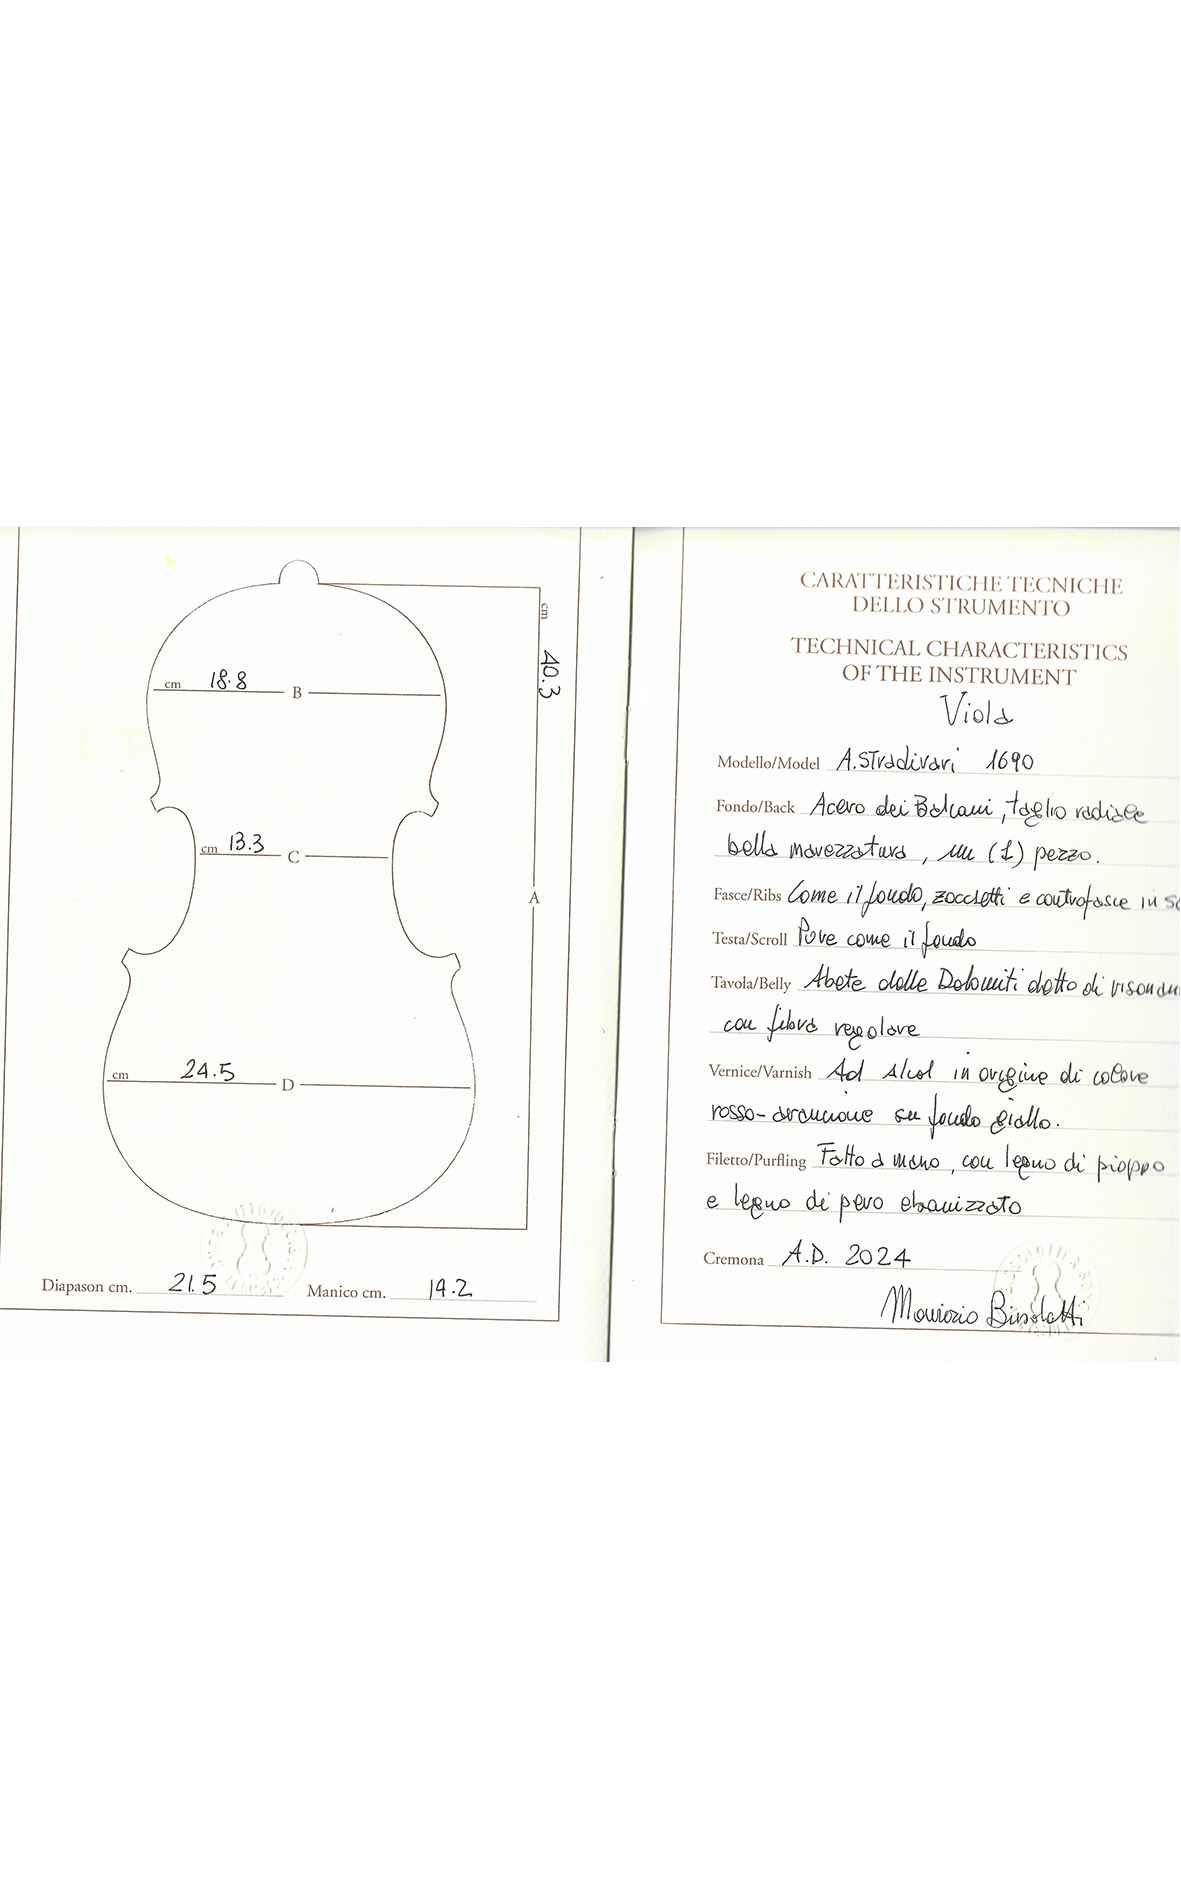 cm 40.3
cm 18.8 B
cm 13.3 C
A
cm 24.5 D
Diapason cm. 21.5 Manico cm. 19.2
CARATTERISTICHE TECNICHE
DELLO STRUMENTO
TECHNICAL CHARACTERISTICS
OF THE INSTRUMENT
Viola
Modello/Model A. Stradivari 1690
Fondo/Back Acero dei Balcani, taglio radiale
bella marezzatura, un (1) pezzo.
Fasce/Ribs Come il fondo, zocchetti e controfasce in
Testa/Scroll Pure come il fondo
Tavola/Belly Abete delle Dolomiti detto di
con fibra regolare
Vernice/Varnish Ad Alcol in origine di colore
rosso-arancione su fondo giallo.
Filetto/Purfling Fatto a mano, con legno di pioppo
e legno di pero ebanizzato
Cremona A.D. 2024
Maurizio Bissolotti